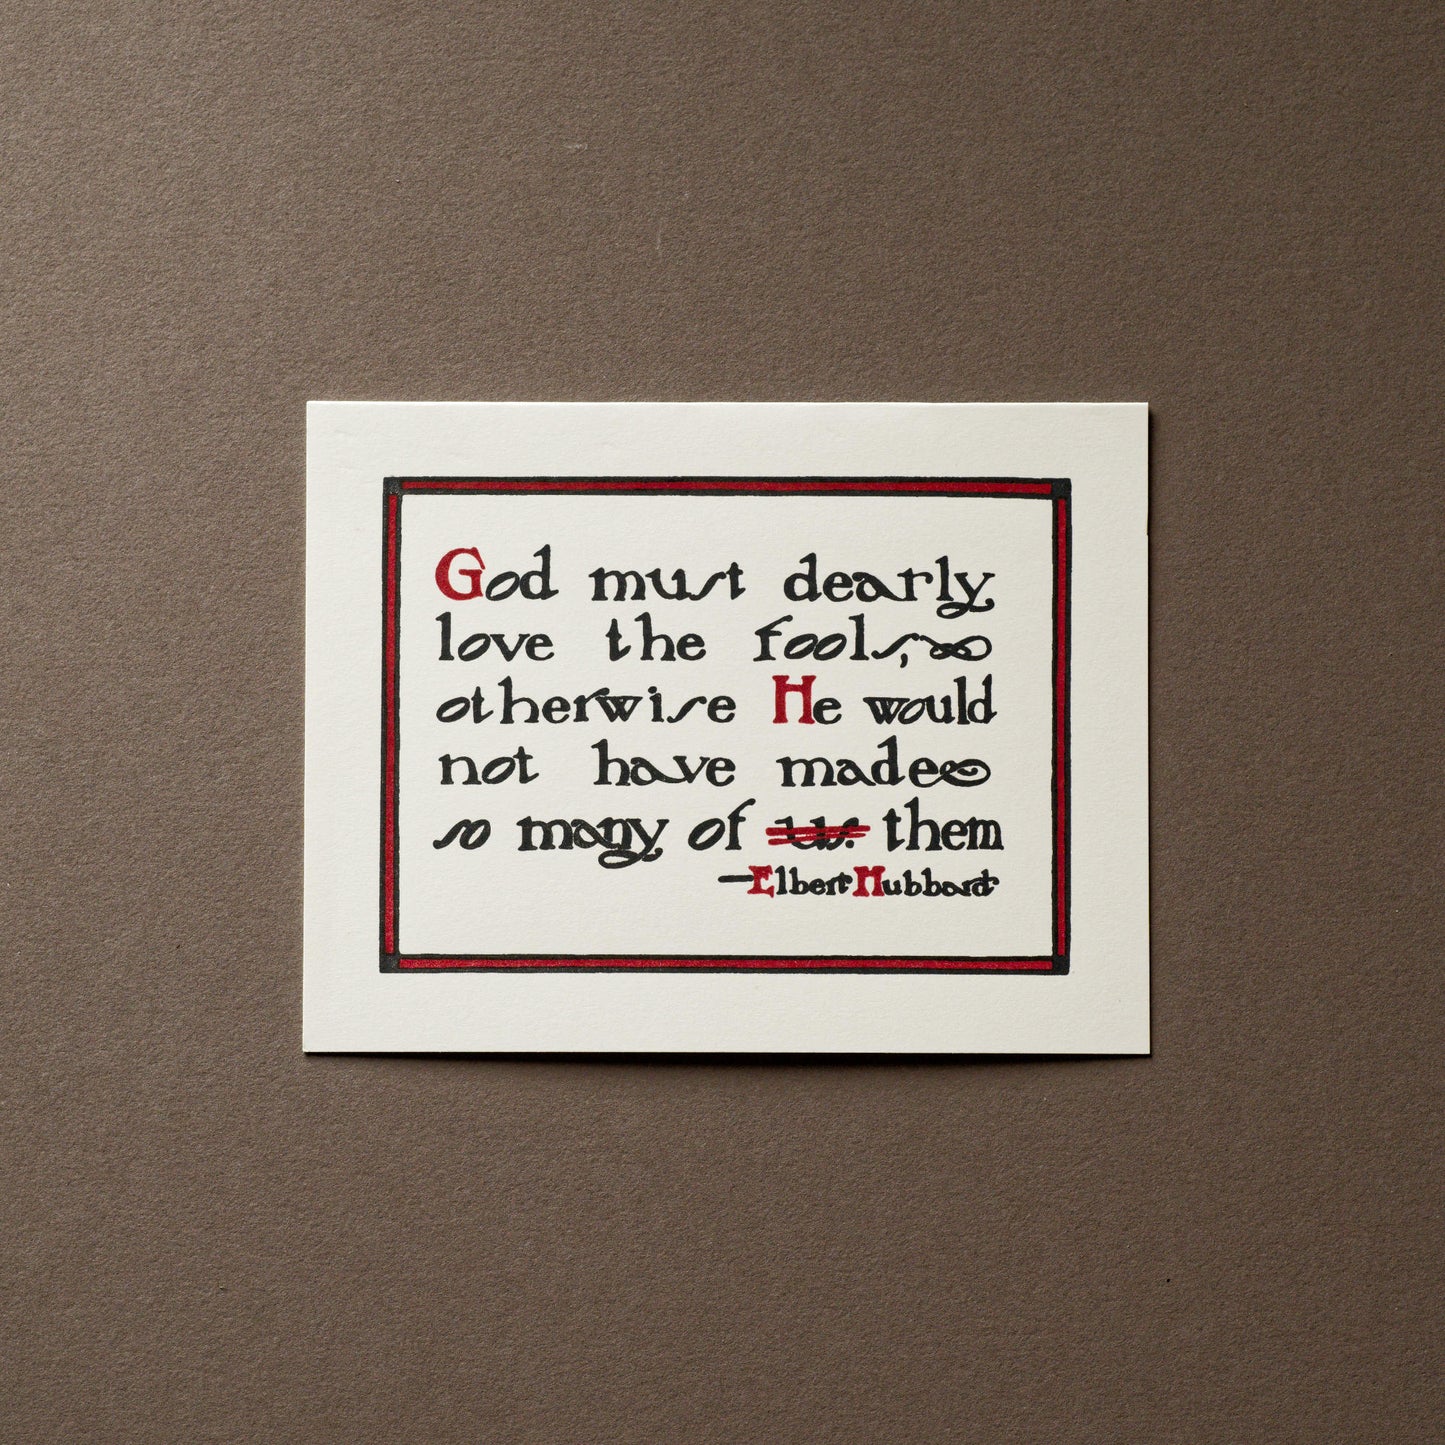 God must dearly
love the fools,
otherwise He would
not have made
so many of us. them
—Elbert Hubbard